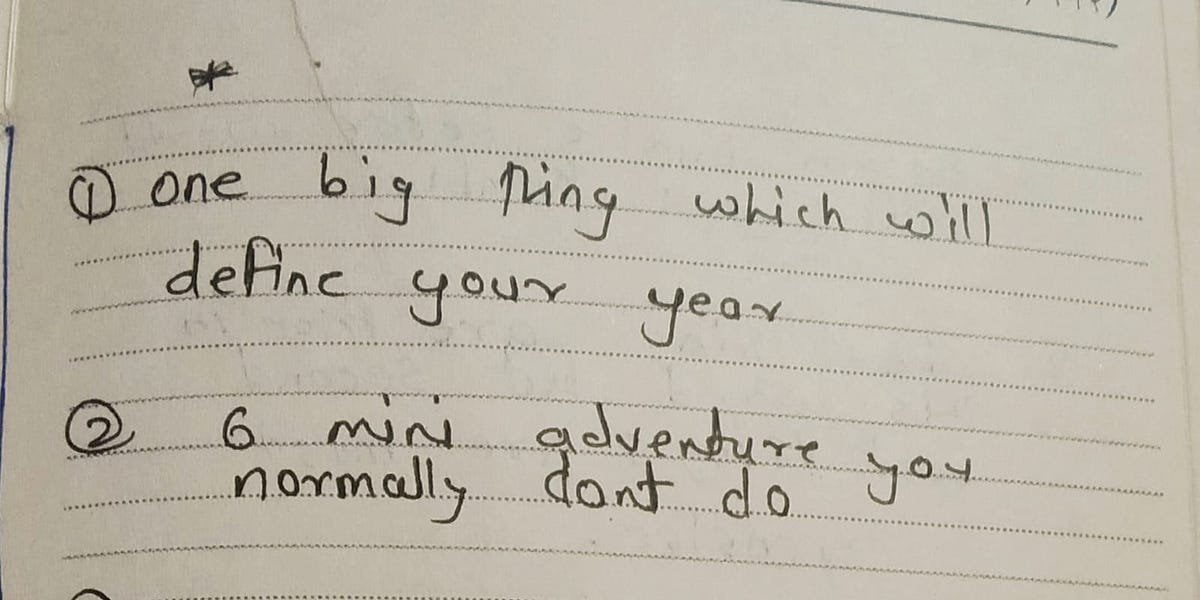 *
① one big thing which will
define your year
② 6 mini adventure you
normally dont do